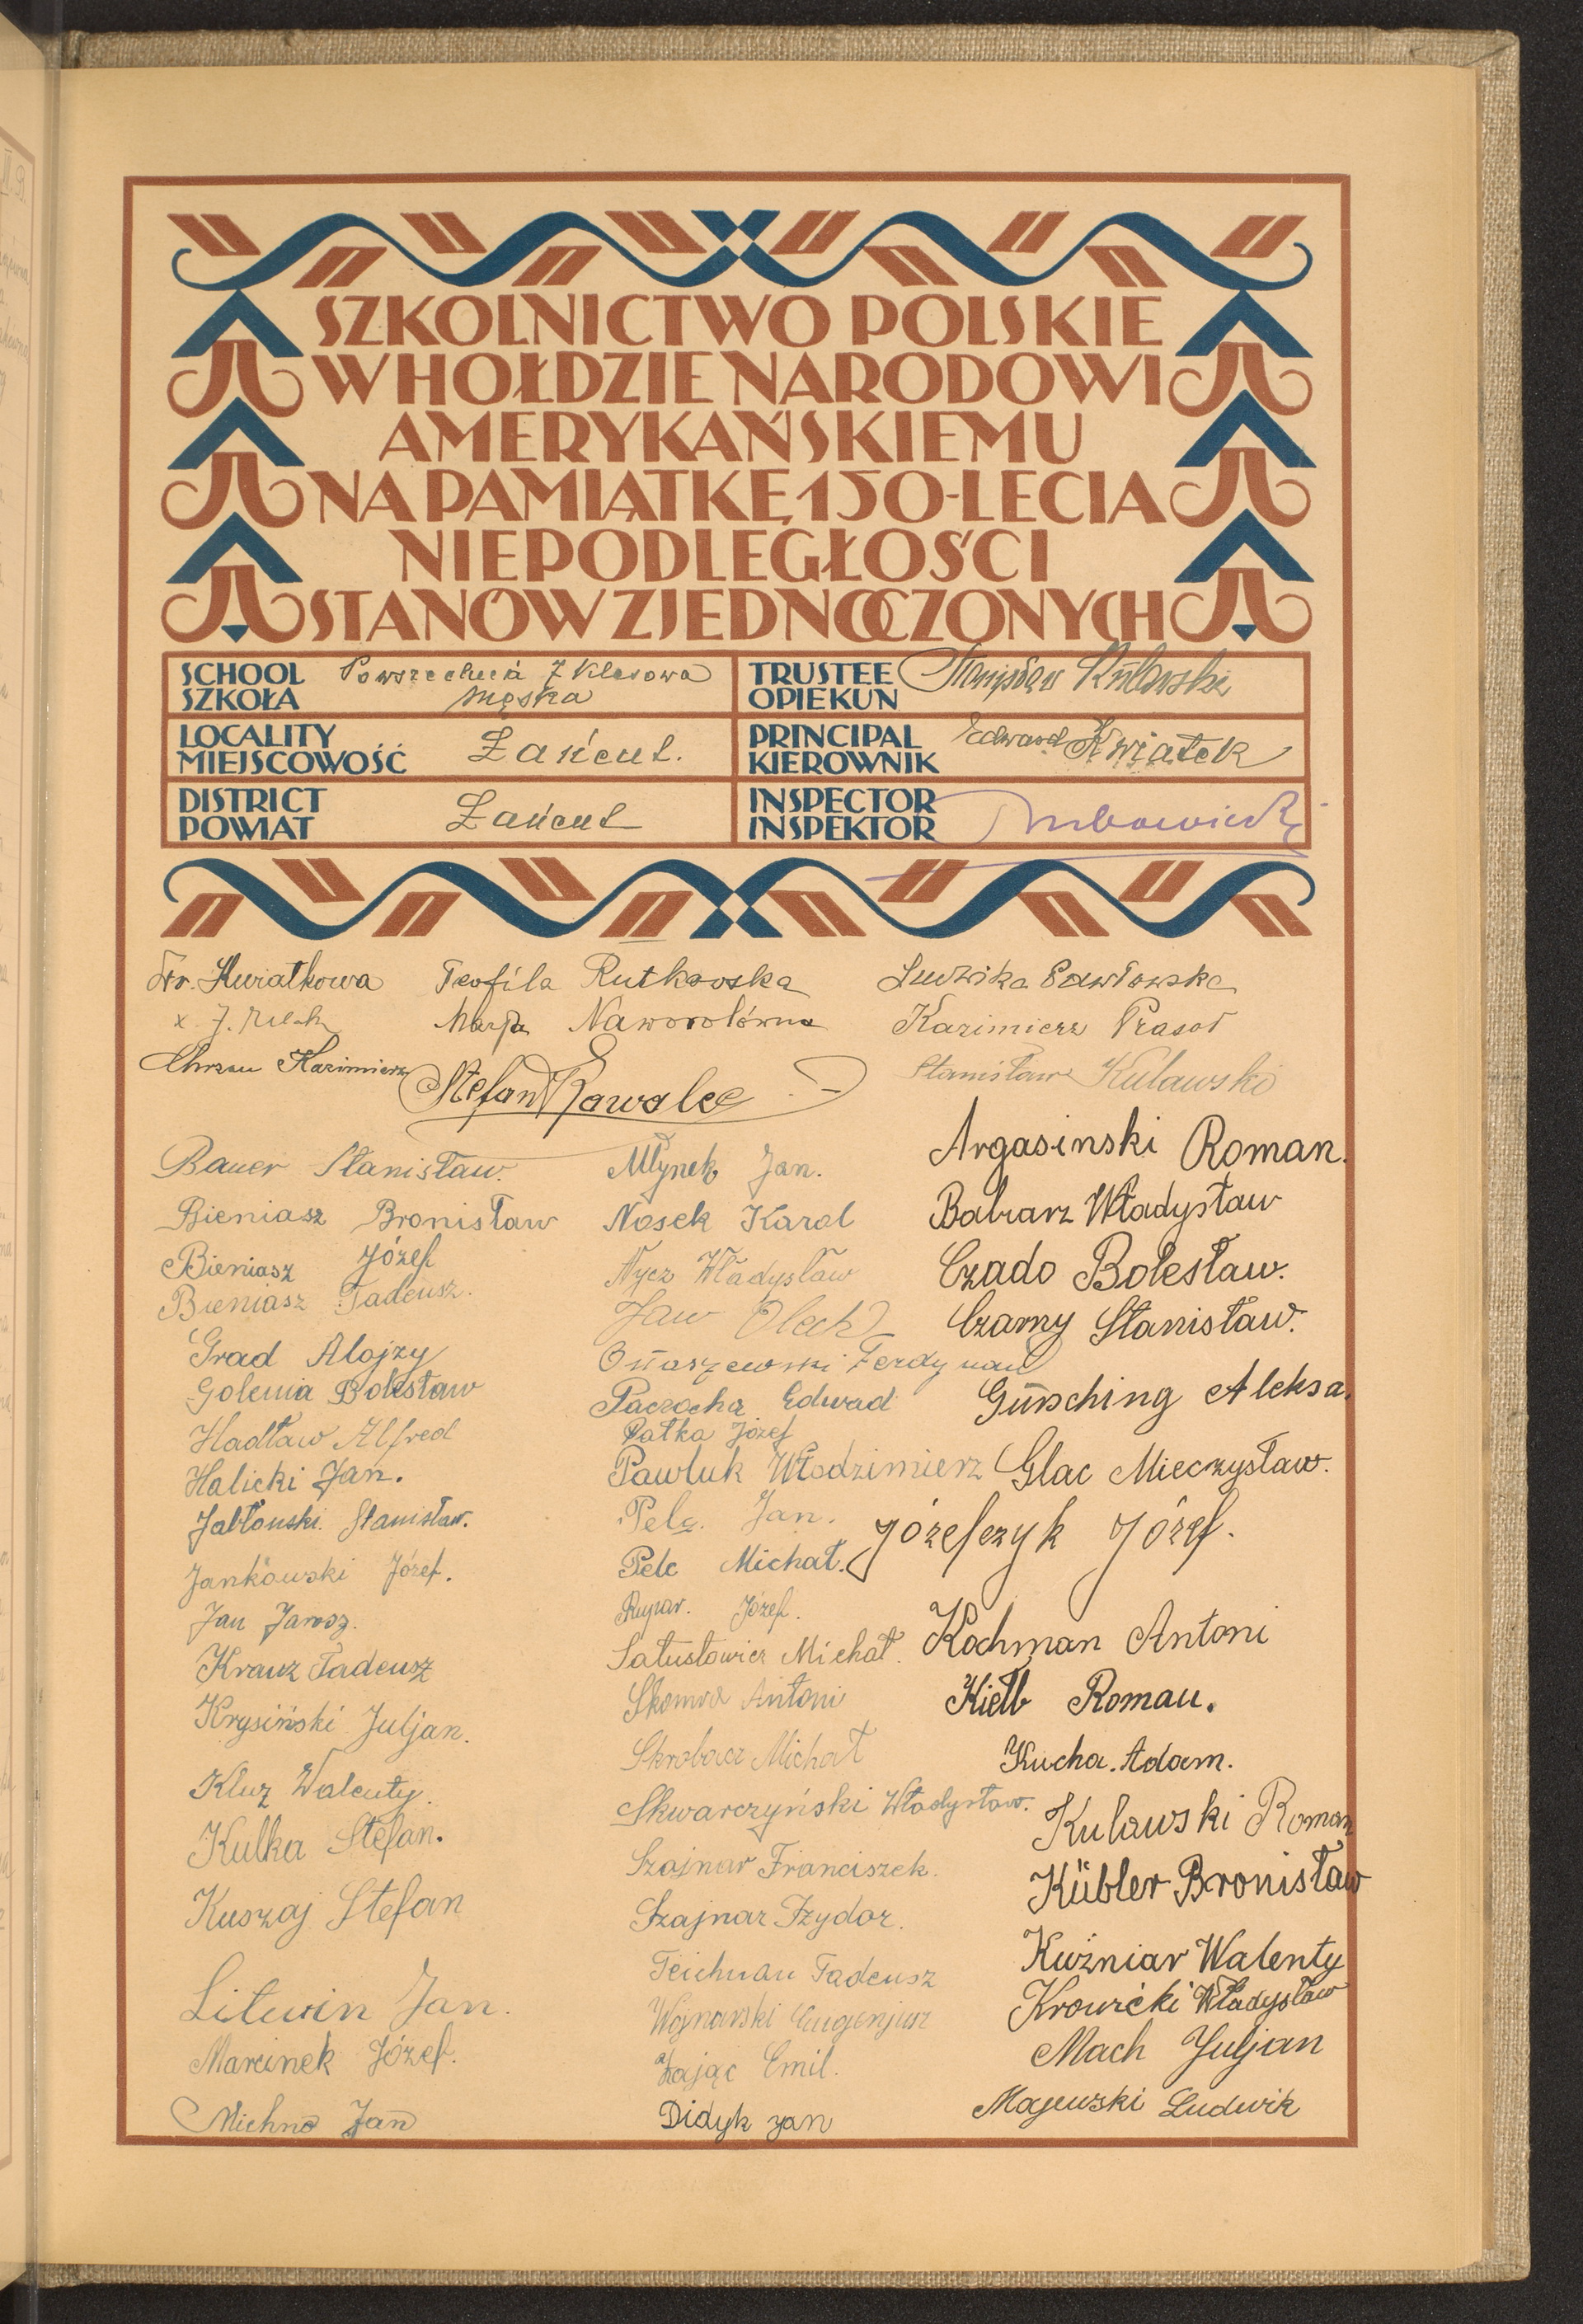 SZKOLNICTWO POLSKIE
W HOŁDZIE NARODOWI
AMERYKAŃSKIEMU
NA PAMIĄTKĘ 150-LECIA
NIEPODLEGŁOŚCI
STANÓW ZJEDNOCZONYCH
SCHOOL
SZKOŁA
Powszechna 7 klasowa
męska
TRUSTEE
OPIEKUN
Stanisław Kulawski
LOCALITY
MIEJSCOWOŚĆ
Łańcut.
PRINCIPAL
KIEROWNIK
Edward Kwiatek
DISTRICT
POWIAT
Łańcut
INSPECTOR
INSPEKTOR
Fr. Kwiatkowa
Teofila Rutkowska
Ludwika Pawłowska
x. J.
Marja Naworolówna
Kazimierz Prasoł
Chrzan Kazimierz
Stefan Kowalec
Stanisław Kulawski
Bauer Stanisław.
Bieniasz Bronisław
Bieniasz Józef
Bieniasz Tadeusz.
Grad Alojzy
Golenia Bolesław
Hadław Alfred
Halicki Jan.
Jabłoński. Stanisław.
Jankowski Józef.
Jan Jarosz.
Krauz Tadeusz
Krysiński Juljan.
Kluz Walenty.
Kulka Stefan.
Kuszaj Stefan
Litwin Jan.
Marcinek Józef.
Michno Jan
Młynek Jan.
Nosek Karol
Nycz Władysław
Jaw Olech
Onaszewski Ferdynand
Paczocha Edwad
Patka Józef
Pawluk Włodzimierz
Pelc. Jan.
Pelc Michał.
Rupar. Józef.
Sałusłowicz Michał.
Skomra Antoni
Skrobacz Michał
Skwarczyński Władysław.
Szajnar Franciszek.
Szajnar Izydor.
Teichman Tadeusz
Wojnarski Eugenjusz
Zając Emil.
Didyk Jan
Argasinski Roman.
Babiarz Władysław
Czado Bolesław.
Czarny Stanisław.
Günsching Aleksa.
Glac Mieczysław.
Józefczyk Józef.
Kochman Antoni
Kiełb Roman.
Kucha. Adam.
Kulawski Roman
Kübler Bronisław
Kuźniar Walenty
Krowicki Władysław
Mach Juljan
Majewski Ludwik